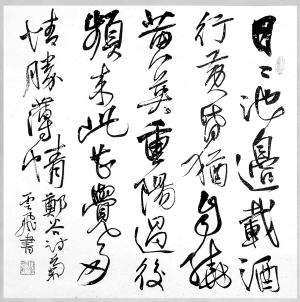 日々池邊載酒
行黃昏猶自繞
黃英重陽過後
頻來此甚覺多
情勝薄情鄭谷詩菊
云飛書